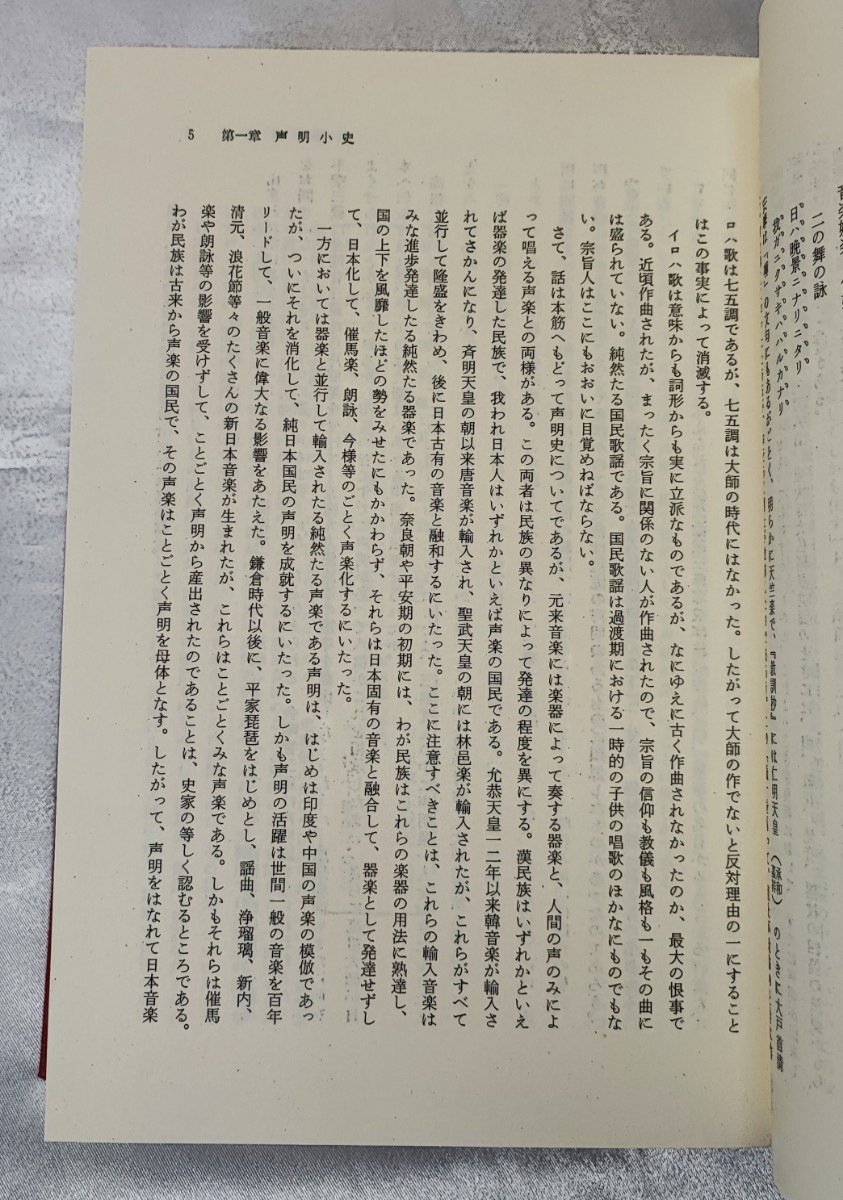 二の舞の詠
日ハ晩景ニナリニタリ
我ガユクサキハハルカナリ
5　第一章 声明小史
ロハ歌は七五調であるが、七五調は大師の時代にはなかった。したがって大師の作でないと反対理由の一にすること
はこの事実によって消滅する。
イロハ歌は意味からも詞形からも実に立派なものであるが、なにゆえに古く作曲されなかったのか、最大の恨事で
ある。近頃作曲されたが、まったく宗旨に関係のない人が作曲されたので、宗旨の信仰も教儀も風格も一もその曲に
は盛られていない。純然たる国民歌謡である。国民歌謡は過渡期における一時的の子供の唱歌のほかなにものでもな
い。宗旨人はここにもおおいに目覚めねばならない。
さて、話は本筋へもどって声明史についてであるが、元来音楽には楽器によって奏する器楽と、人間の声のみによ
って唱える声楽との両様がある。この両者は民族の異なりによって発達の程度を異にする。漢民族はいずれかといえ
ば器楽の発達した民族で、我われ日本人はいずれかといえば声楽の国民である。允恭天皇一二年以来韓音楽が輸入さ
れてさかんになり、斉明天皇の朝以来唐音楽が輸入され、聖武天皇の朝には林邑楽が輸入されたが、これらがすべて
並行して隆盛をきわめ、後に日本古有の音楽と融和するにいたった。ここに注意すべきことは、これらの輸入音楽は
みな進歩発達したる純然たる器楽であった。奈良朝や平安期の初期には、わが民族はこれらの楽器の用法に熟達し、
国の上下を風靡したほどの勢をみせたにもかかわらず、それらは日本固有の音楽と融合して、器楽として発達せずし
て、日本化して、催馬楽、朗詠、今様等のごとく声楽化するにいたった。
一方においては器楽と並行して輸入されたる純然たる声楽である声明は、はじめは印度や中国の声楽の模倣であっ
たが、ついにそれを消化して、純日本国民の声明を成就するにいたった。しかも声明の活躍は世間一般の音楽を百年
リードして、一般音楽に偉大なる影響をあたえた。鎌倉時代以後に、平家琵琶をはじめとし、謡曲、浄瑠璃、新内、
清元、浪花節等々のたくさんの新日本音楽が生まれたが、これらはことごとくみな声楽である。しかもそれらは催馬
楽や朗詠等の影響を受けずして、ことごとく声明から産出されたのであることは、史家の等しく認むるところである。
わが民族は古来から声楽の国民で、その声楽はことごとく声明を母体となす。したがって、声明をはなれて日本音楽